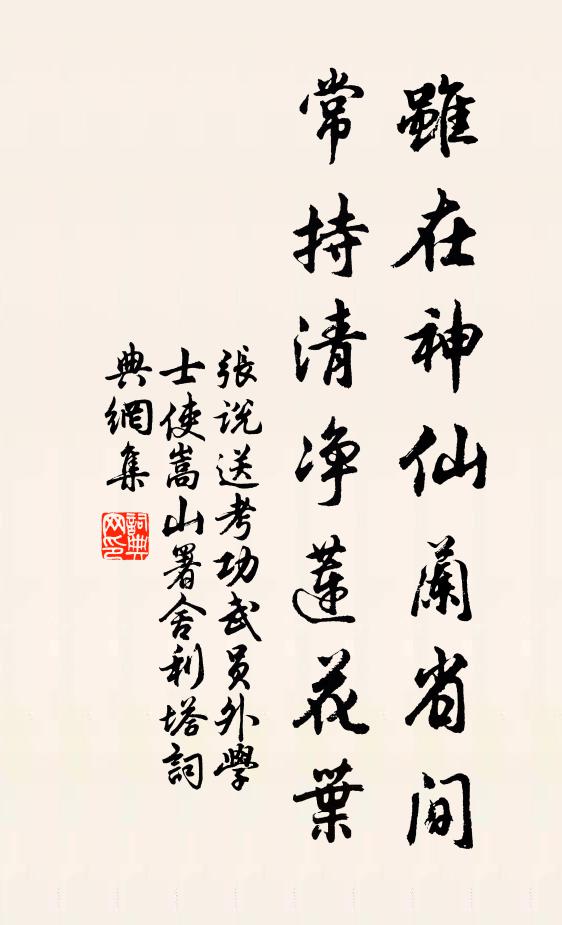 雖在神仙蘭省間
常持清净蓮花葉
張說送考功武員外學
士使嵩山署舍利塔詞
典網集
詞典網印